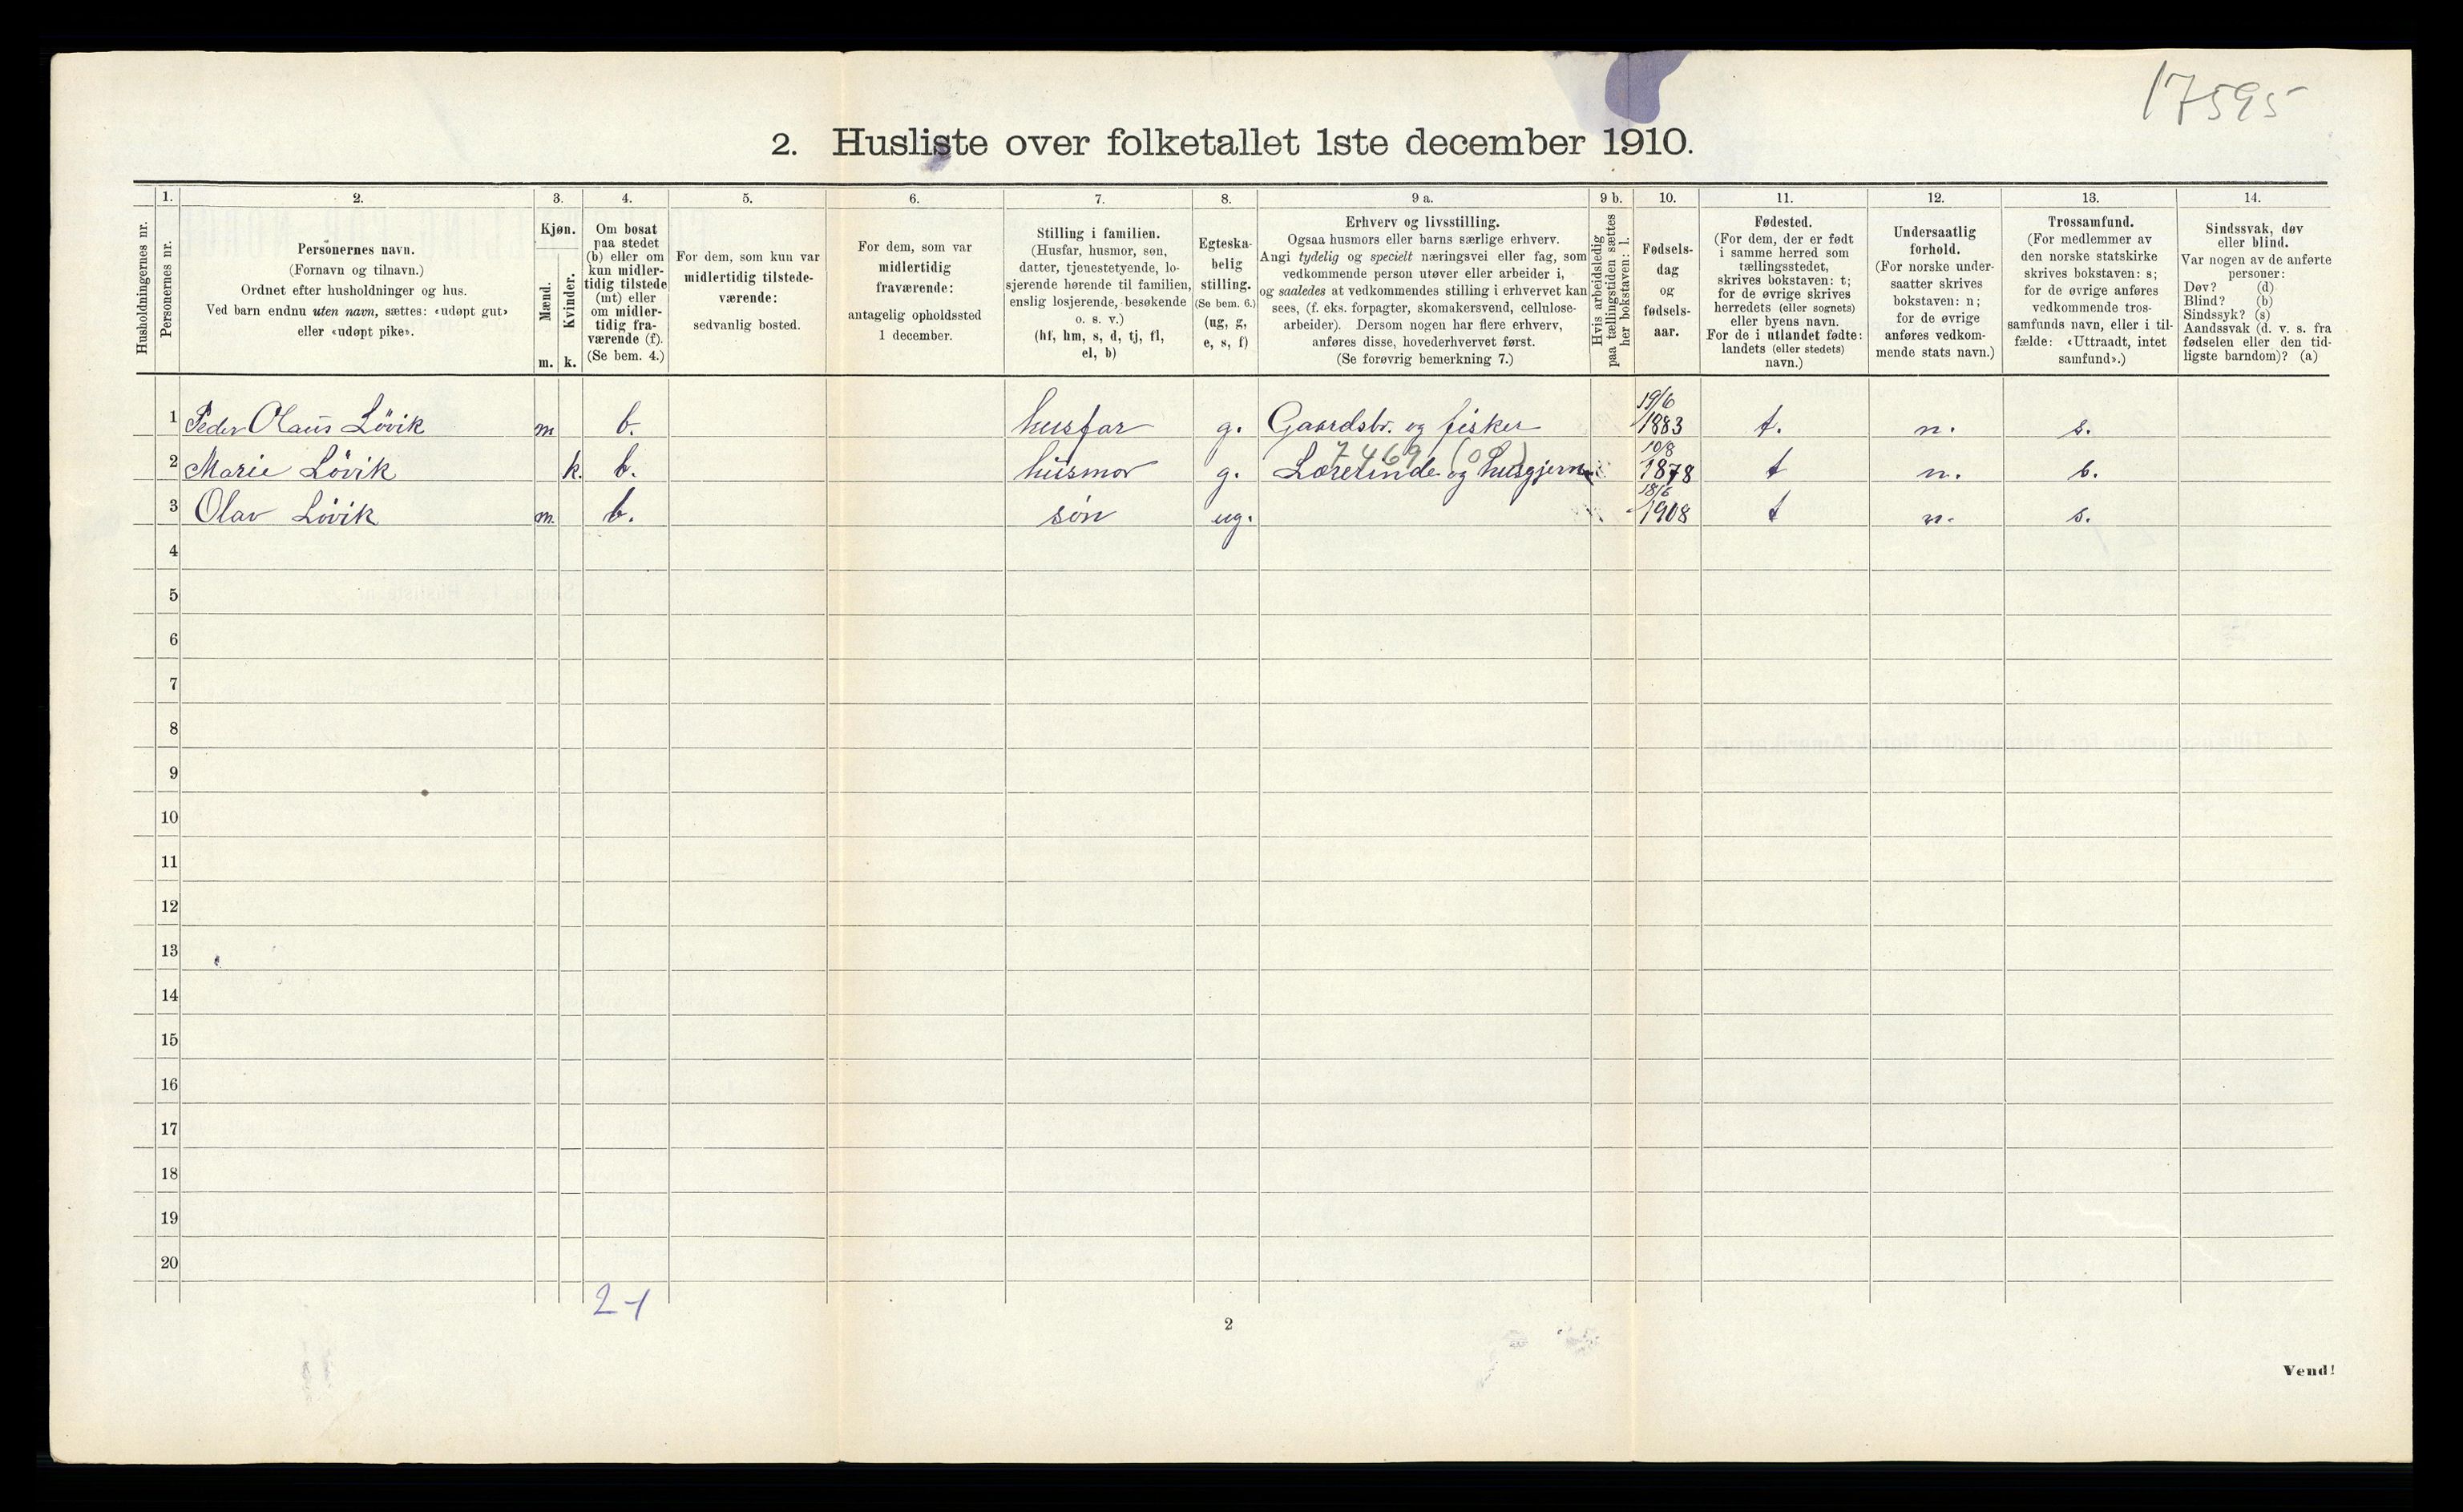 17595
2. Husliste over folketallet 1ste december 1910.
Husholdningernes nr.
1.
Personernes nr.
2.
Personernes navn.
(Fornavn og tilnavn.)
Ordnet efter husholdninger og hus.
Ved barn endnu uten navn, sættes: «udøpt gut»
eller «udøpt pike».
3.
Kjøn.
Mænd.
Kvinder.
m. k.
4.
Om bosat
paa stedet
(b) eller om
kun midler-
tidig tilstede
(mt) eller
om midler-
tidig fra-
værende (f).
(Se bem. 4.)
5.
For dem, som kun var
midlertidig tilstede-
værende:
sedvanlig bosted.
6.
For dem, som var
midlertidig
fraværende:
antagelig opholdssted
1 december.
7.
Stilling i familien.
(Husfar, husmor, søn,
datter, tjenestetyende, lo-
sjerende hørende til familien,
enslig losjerende, besøkende
o. s. v.)
(hf, hm, s, d, tj, fl,
el, b)
8.
Egteska-
belig
stilling.
(Se bem. 6.)
(ug, g,
e, s, f)
9 a.
Erhverv og livsstilling.
Ogsaa husmors eller barns særlige erhverv.
Angi tydelig og specielt næringsvei eller fag, som
vedkommende person utøver eller arbeider i,
og saaledes at vedkommendes stilling i erhvervet kan
sees, (f. eks. forpagter, skomakersvend, cellulose-
arbeider). Dersom nogen har flere erhverv,
anføres disse, hovederhvervet først.
(Se forøvrig bemerkning 7.)
9 b.
Hvis arbeidsledig
paa tællingstiden sættes
her bokstaven: l.
10.
Fødsels-
dag
og
fødsels-
aar.
11.
Fødested.
(For dem, der er født
i samme herred som
tællingsstedet,
skrives bokstaven: t;
for de øvrige skrives
herredets (eller sognets)
eller byens navn.
For de i utlandet fødte:
landets (eller stedets)
navn.)
12.
Undersaatlig
forhold.
(For norske under-
saatter skrives
bokstaven: n;
for de øvrige
anføres vedkom-
mende stats navn.)
13.
Trossamfund.
(For medlemmer av
den norske statskirke
skrives bokstaven: s;
for de øvrige anføres
vedkommende tros-
samfunds navn, eller i til-
fælde: «Uttraadt, intet
samfund».)
14.
Sindssvak, døv
eller blind.
Var nogen av de anførte
personer:
Døv? (d)
Blind? (b)
Sindssyk? (s)
Aandssvak (d. v. s. fra
fødselen eller den tid-
ligste barndom)? (a)
1 Peder Olaus Lövik m b. husfar g. Gaardsbr. og fisker 19/6 1883 t. n. s.
7469 (00)
2 Marie Lövik k. b. husmor g. Lærerinde og husgjern. 10/8 1878 t n. s.
3 Olav Lövik m. b. søn ug. 18/6 1908 t n. s.
4
5
6
7
8
9
10
11
12
13
14
15
16
17
18
19
20
2-1
2
Vend!